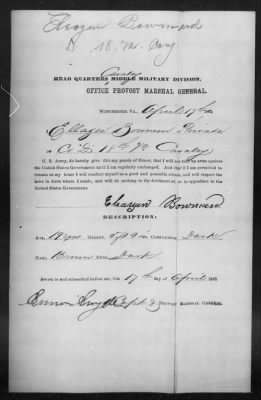 Eleazer Bowman
D. 18. Va. Cavy
Cavalry
HEAD QUARTERS MIDDLE MILITARY DIVISION,
OFFICE PROVOST MARSHAL GENERAL.
WINCHESTER VA., April 17th 1865.
I, Eleazer Bowman Private
Co D. 18th Va Cavalry
C. S. Army, do hereby give this my parole of honor, that I will not take up arms against
the United States Government until I am regularly exchanged. And that if I am permitted to
remain at my home I will conduct myself as a good and peaceable citizen, and will respect
the laws in force where I reside, and will do nothing to the detriment of, or in opposition to the
United States Government.
Eleazer Bowman
DESCRIPTION:
AGE, HEIGHT, 5 ft 9 in. COMPLEXION Dark
HAIR, Brown EYES Dark
Sworn to and subscribed before me, this 17th day of April 1865.
Capt & PROVOST MARSHAL GENERAL.